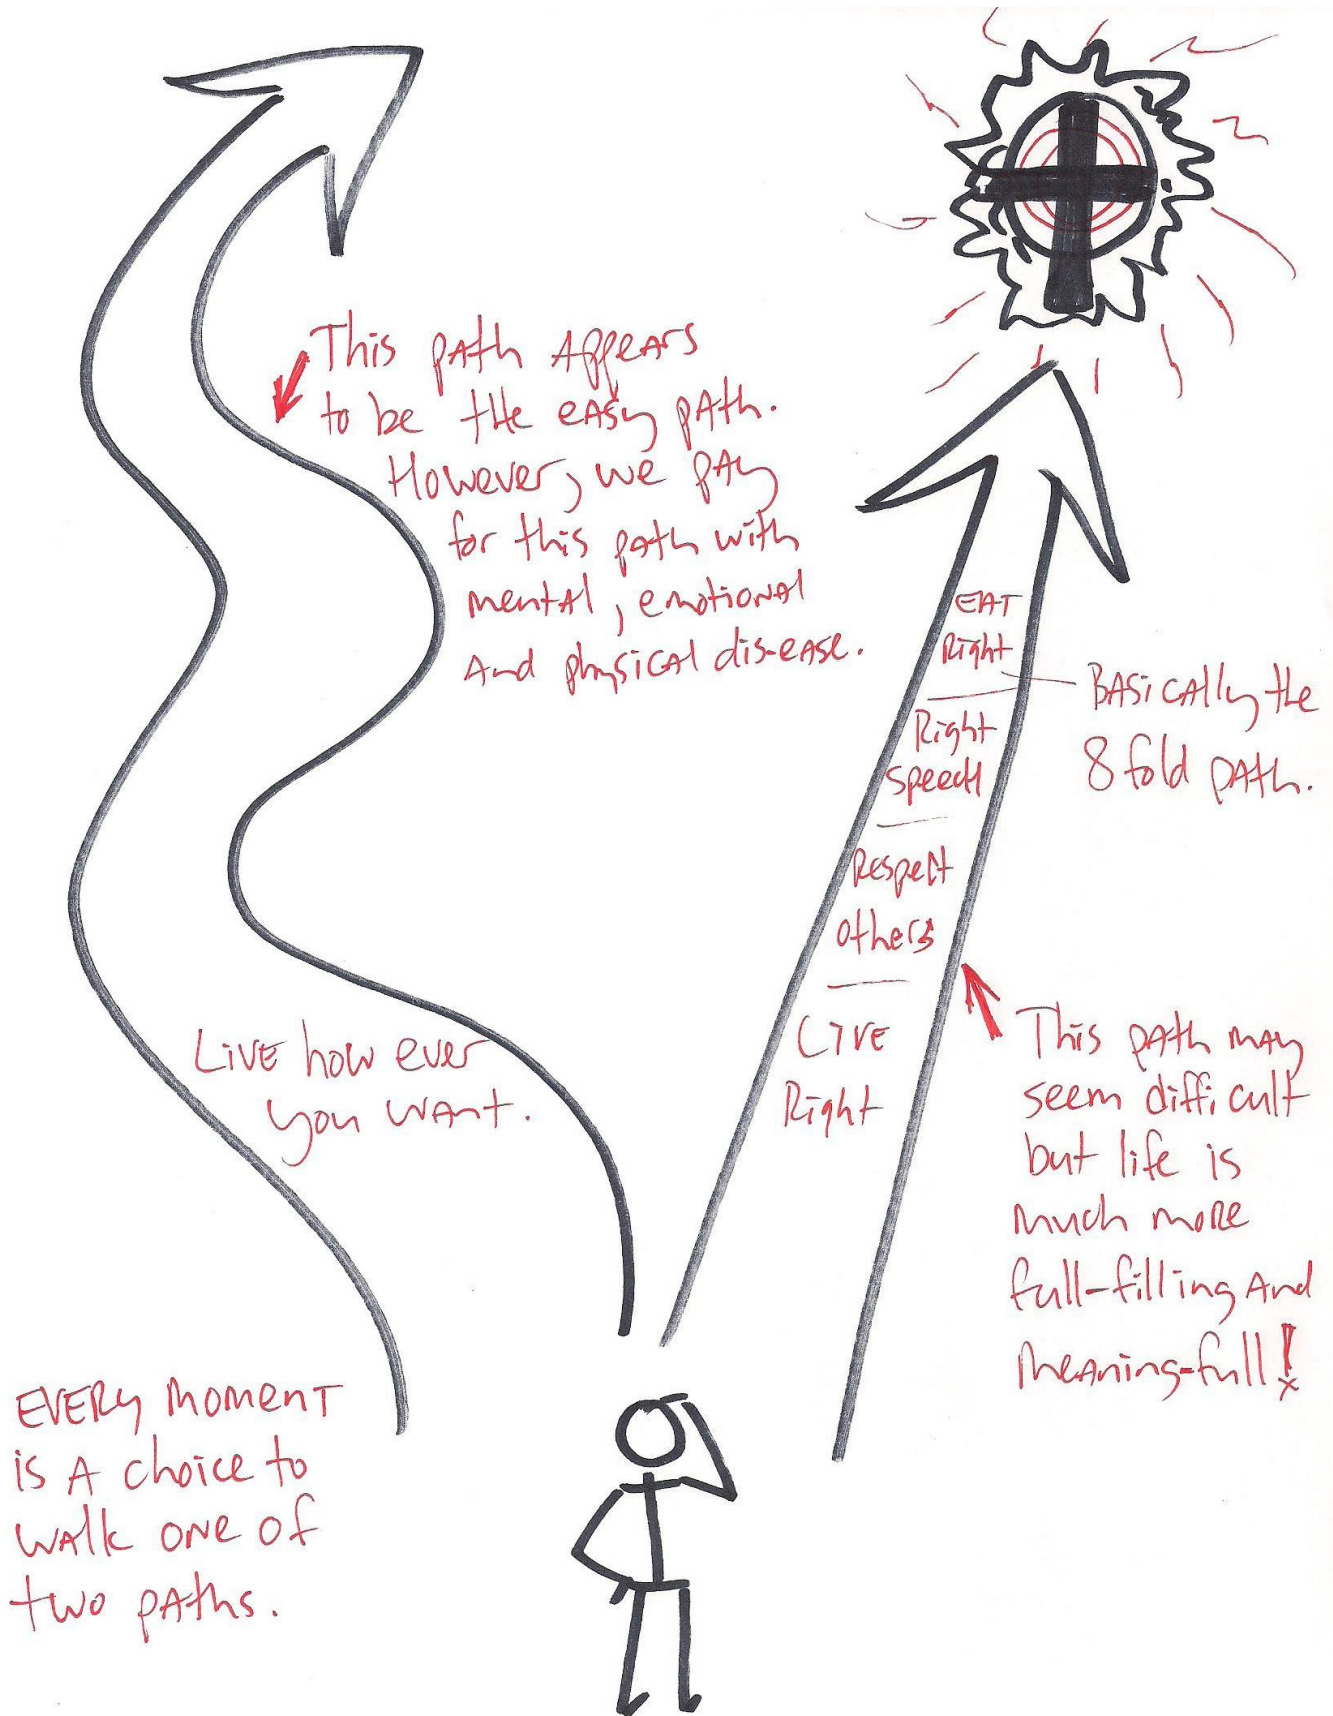 This path Appears
to be the easy path.
However, we pay
for this path with
mental, emotional
and physical dis-ease.
EAT
Right
Right
speech
Respect
others
Live
Right
Basically the
8 fold path.
Live how ever
you want.
This path may
seem difficult
but life is
much more
full-filling and
meaning-full!
EVERY MOMENT
is A choice to
walk one of
two paths.